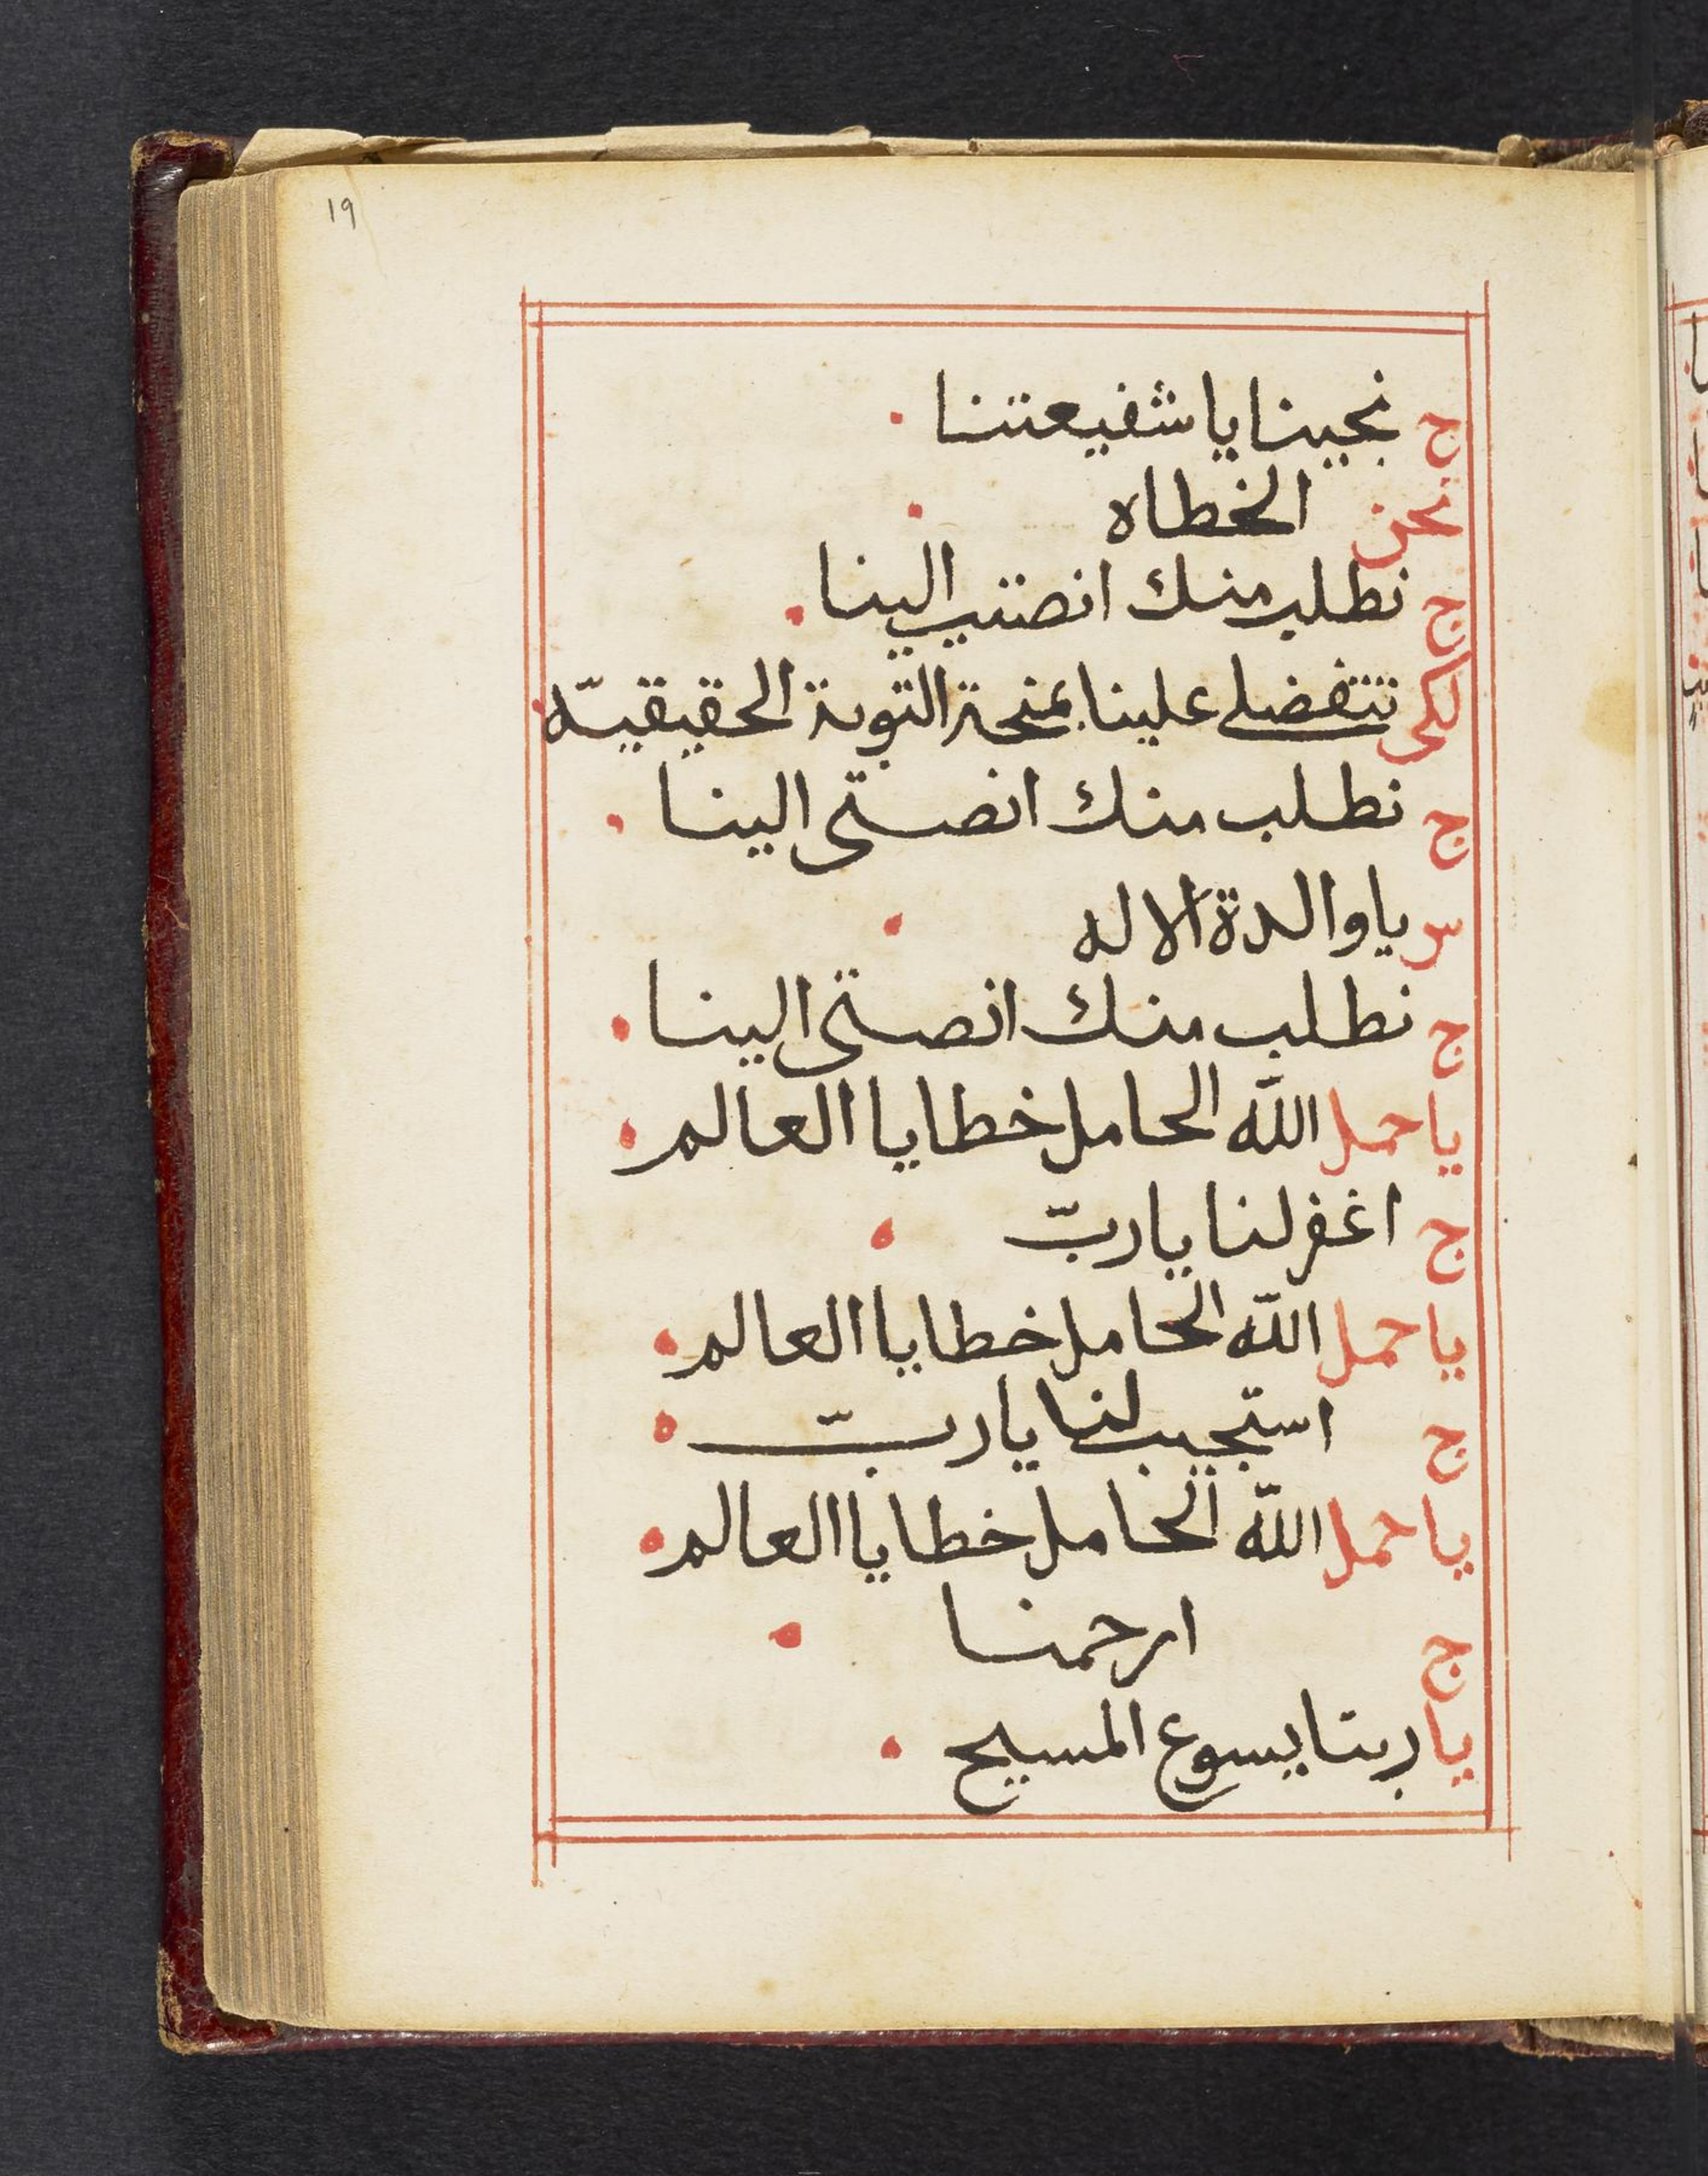 19
ج نجيينا يا شفيعتنا
نحن الخطاه
ج نطلب منك انصتيي الينا
لكي تتفضلي علينا بمنحة التوبة الحقيقيّه
ج نطلب منك انصتى الينا
س يا والدة الاله
ج نطلب منك انصتى الينا
يا حمل الله الحامل خطايا العالم
ج اغفر لنا يا ربّ
يا حمل الله الحامل خطايا العالم
ج استجيب لنا يا ربّ
يا حمل الله الحامل خطايا العالم
ج ارحمنا
يا ربنا يسوع المسيح